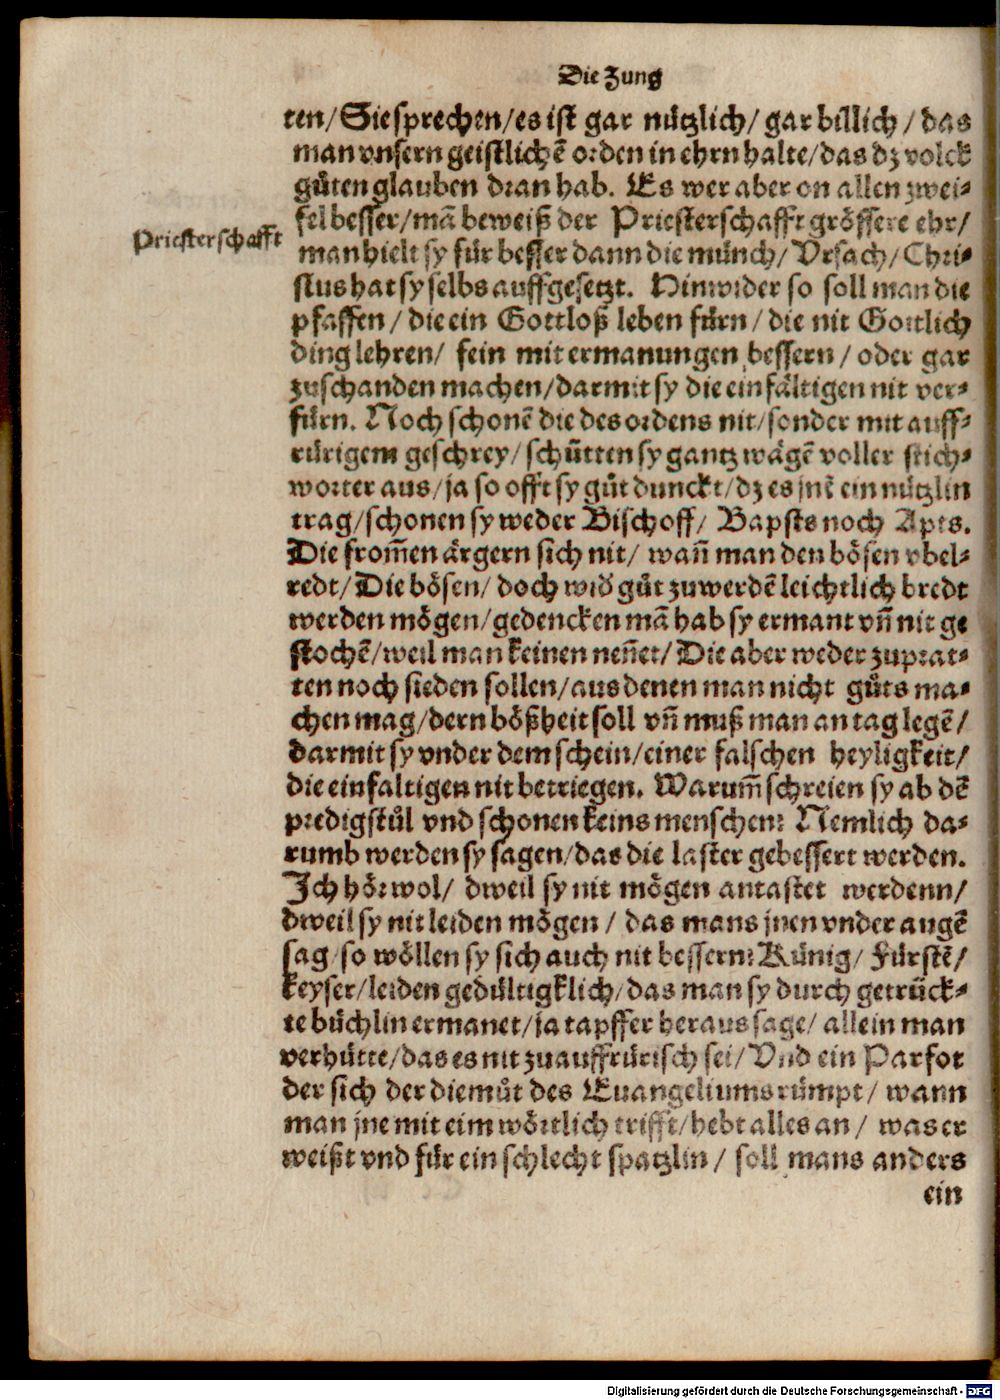 Die Zung
ten/ Sie sprechen/ es ist gar nützlich/ gar billich/ das
man vnsern geistlichẽ orden in ehrn halte/ das dz volck
gůten glauben dran hab. Es wer aber on allen zwei⸗
fel besser/ mã beweiß der Priesterschafft grössere ehr/
Priesterschafft
man hielt sy für besser dann die münch/ Vrsach/ Chri⸗
stus hat sy selbs auffgesetzt. Hinwider so soll man die
pfaffen/ die ein Gottloß leben fürn/ die nit Gottlich
ding lehren/ fein mit ermanungen bessern/ oder gar
zuschanden machen/ darmit sy die einfältigen nit ver⸗
fürn. Noch schonẽ die des ordens nit/ sonder mit auff⸗
rürigem geschrey/ schütten sy gantz wägẽ voller stich⸗
worter aus/ ja so offt sy gůt dunckt/ dz es jnẽ ein nützlin
trag/ schonen sy weder Bischoff/ Bapsts noch Apts.
Die from̃en ärgern sich nit/ wañ man den bösen vbel⸗
redt/ Die bösen/ doch wid gůt zuwerdẽ leichtlich bredt
werden mögen/ gedencken mã hab sy ermant vñ nit ge
stochẽ/ weil man keinen neñet/ Die aber weder zuprat⸗
ten noch sieden sollen/ aus denen man nicht gůts ma⸗
chen mag/ dern bößheit soll vñ muß man an tag legẽ/
darmit sy vnder dem schein/ einer falschen heyligkeit/
die einfaltigen nit betriegen. Warum̃ schreien sy ab dẽ
predigstůl vnd schonen keins menschen? Nemlich da⸗
rumb werden sy sagen/ das die laster gebessert werden.
Ich hör wol/ dweil sy nit mögen antastet werdenn/
dweil sy nit leiden mögen/ das mans jnen vnder augẽ
sag/ so wöllen sy sich auch nit bessern? Künig/ Fürstẽ/
keyser/ leiden gedültigklich/ das man sy durch getrück⸗
te büchlin ermanet/ ja tapffer heraus sage/ allein man
verhütte/ das es nit zuauffrürisch sei/ Vnd ein Parfot
der sich der diemůt des Euangeliums rümpt/ wann
man jne mit eim wörtlich trifft/ hebt alles an/ was er
weißt vnd für ein schlecht spatzlin/ soll mans anders
ein
Digitalisierung gefördert durch die Deutsche Forschungsgemeinschaft - DFG